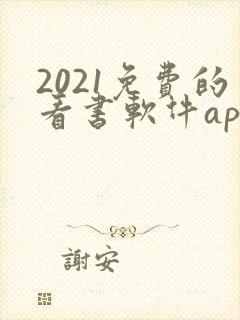 2021免費的
看書軟件ap
謝安